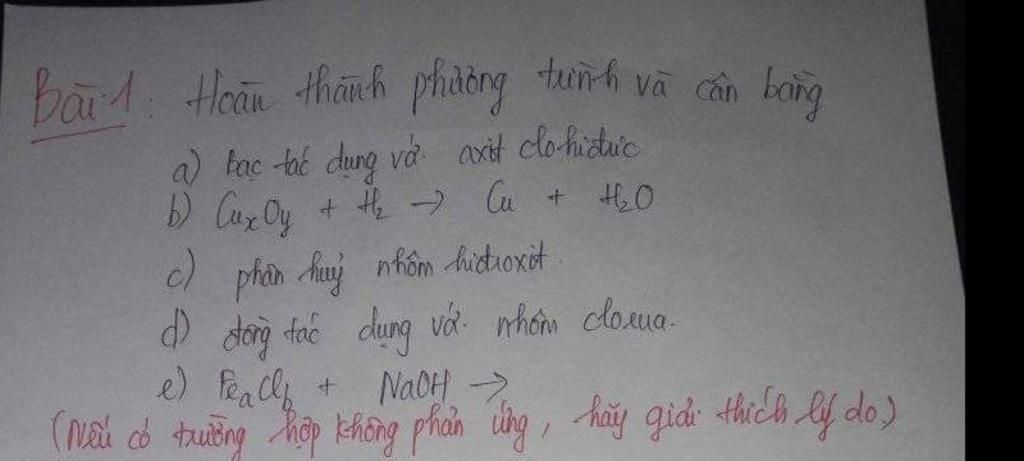 Bài 1: Hoàn thành phương trình và cân bằng
a) Bạc tác dụng với axit clohiđric
b) CuxOy + H2 → Cu + H2O
c) phân huỷ nhôm hiđroxit.
d) đồng tác dụng với nhôm clorua.
e) FeaClb + NaOH →
(Nếu có trường hợp không phản ứng, hãy giải thích lý do.)